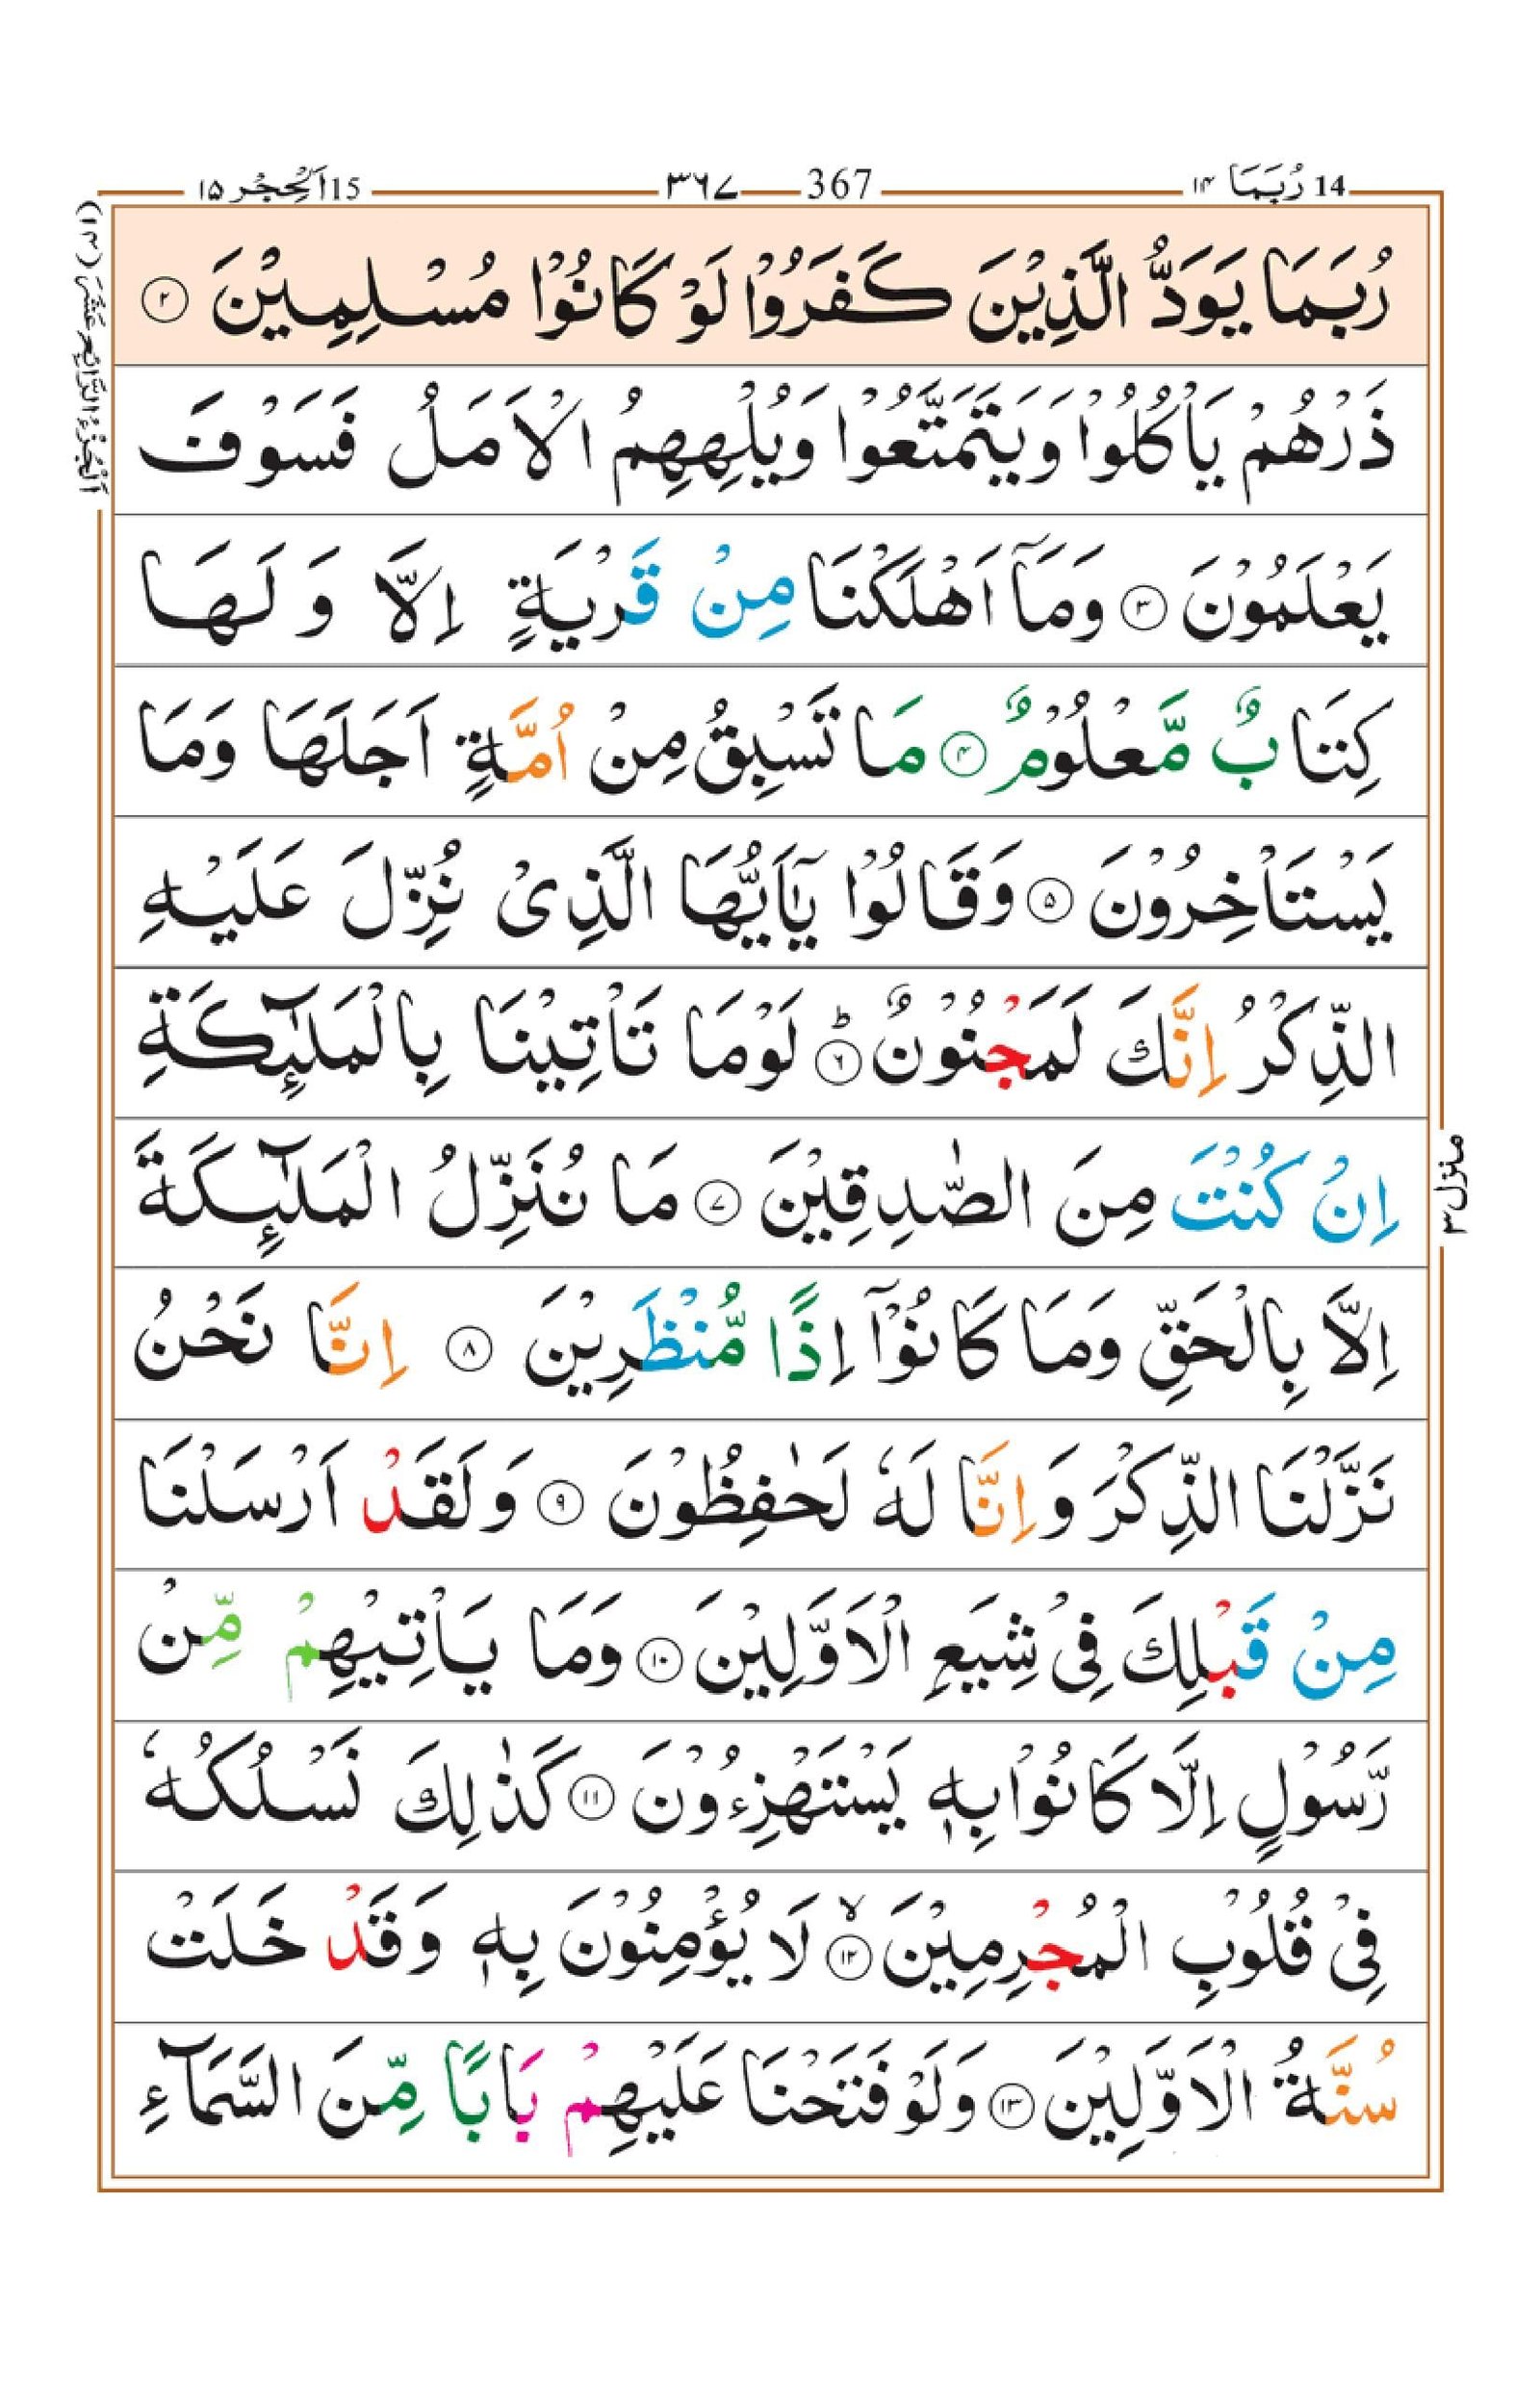 14 رُبَمَا ۱۴
367 ۳۶۷
15 اَلْحِجْر ۱۵
رُبَمَا يَوَدُّ الَّذِيْنَ كَفَرُوْا لَوْ كَانُوْا مُسْلِمِيْنَ ۲
ذَرْهُمْ يَاْكُلُوْا وَيَتَمَتَّعُوْا وَيُلْهِهِمُ الْاَمَلُ فَسَوْفَ
يَعْلَمُوْنَ ۳ وَمَاۤ اَهْلَكْنَا مِنْ قَرْيَةٍ اِلَّا وَلَهَا
كِتَابٌ مَّعْلُوْمٌ ۴ مَا تَسْبِقُ مِنْ اُمَّةٍ اَجَلَهَا وَمَا
يَسْتَاْخِرُوْنَ ۵ وَقَالُوْا يٰۤاَيُّهَا الَّذِىْ نُزِّلَ عَلَيْهِ
الذِّكْرُ اِنَّكَ لَمَجْنُوْنٌؕ ۶ لَوْمَا تَاْتِيْنَا بِالْمَلٰٓئِكَةِ
اِنْ كُنْتَ مِنَ الصّٰدِقِيْنَ ۷ مَا نُنَزِّلُ الْمَلٰٓئِكَةَ
اِلَّا بِالْحَقِّ وَمَا كَانُوْۤا اِذًا مُّنْظَرِيْنَ ۸ اِنَّا نَحْنُ
نَزَّلْنَا الذِّكْرَ وَاِنَّا لَهٗ لَحٰفِظُوْنَ ۹ وَلَقَدْ اَرْسَلْنَا
مِنْ قَبْلِكَ فِىْ شِيَعِ الْاَوَّلِيْنَ ۱۰ وَمَا يَاْتِيْهِمْ مِّنْ
رَّسُوْلٍ اِلَّا كَانُوْا بِهٖ يَسْتَهْزِءُوْنَ ۱۱ كَذٰلِكَ نَسْلُكُهٗ
فِىْ قُلُوْبِ الْمُجْرِمِيْنَۙ ۱۲ لَا يُؤْمِنُوْنَ بِهٖ وَقَدْ خَلَتْ
سُنَّةُ الْاَوَّلِيْنَ ۱۳ وَلَوْ فَتَحْنَا عَلَيْهِمْ بَابًا مِّنَ السَّمَآءِ
اَلْجُزْءُ الرَّابِعُ عَشَرَ (۱۴)
منزل ۳